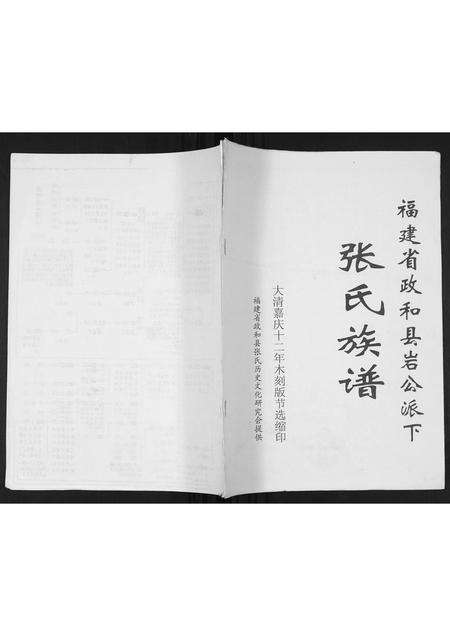 福建省政和县岩公派下
张氏族谱
大清嘉庆十二年木刻版节选缩印
福建省政和县张氏历史文化研究会提供